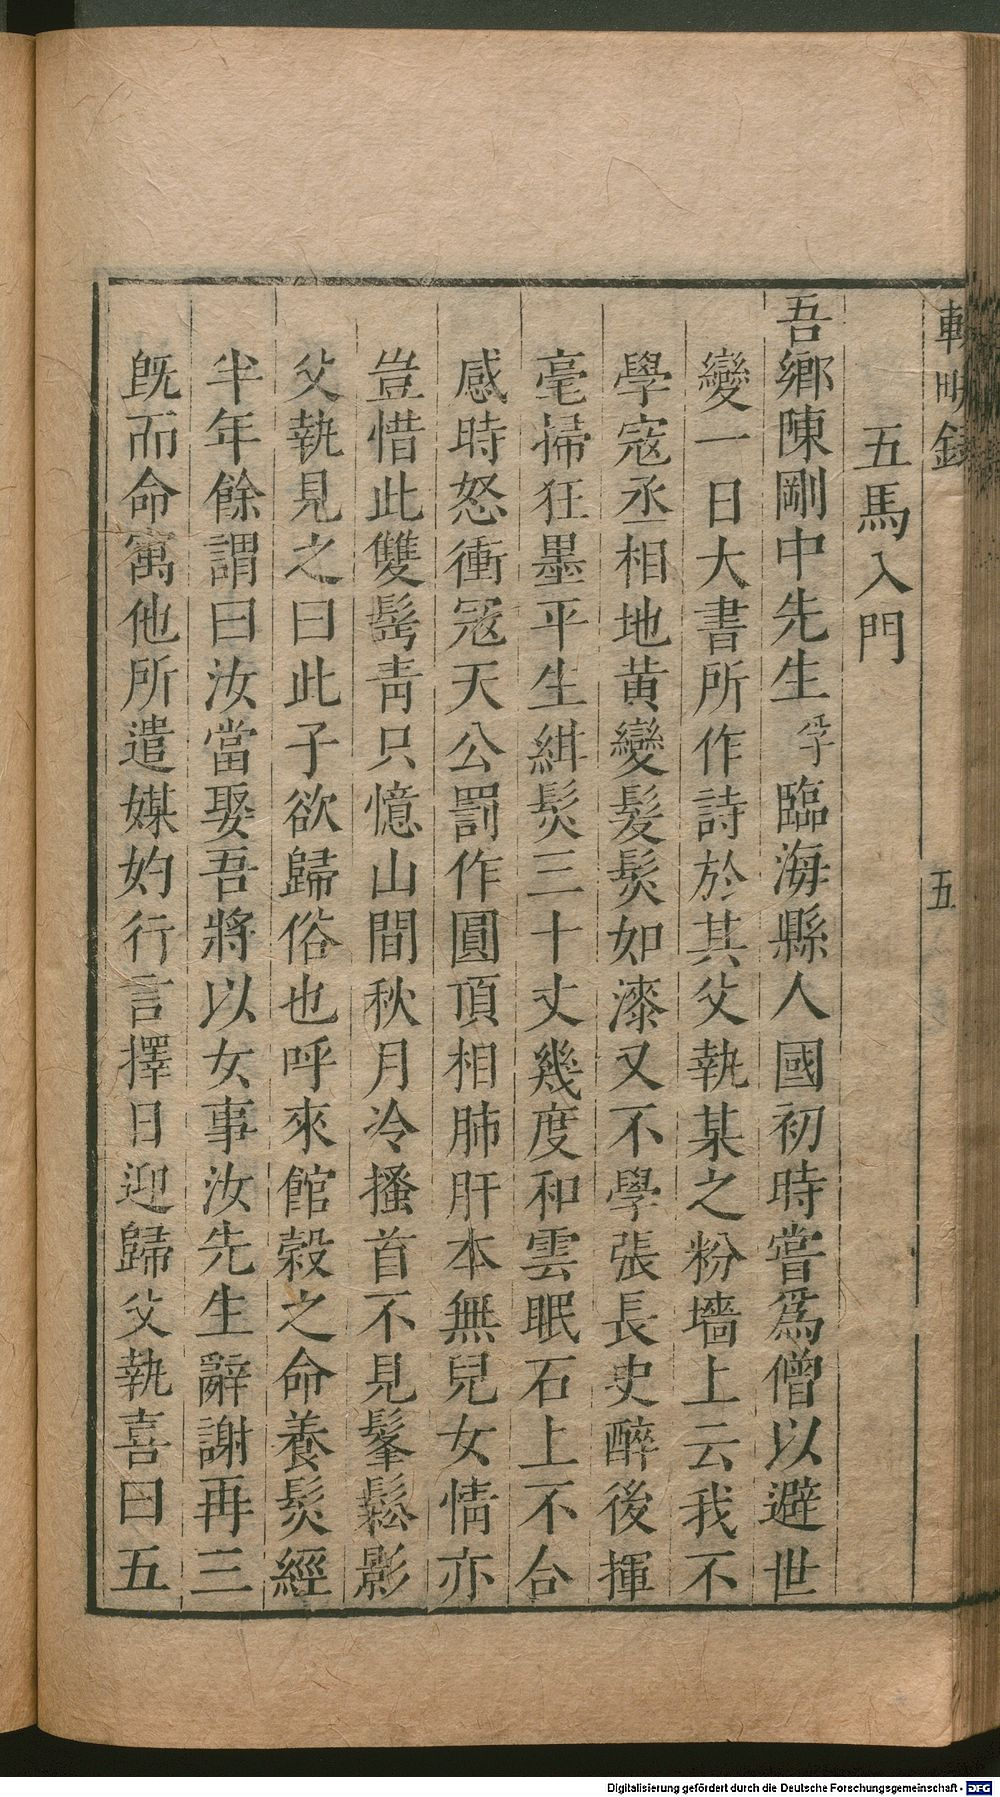 輟畊錄 五
五馬入門
吾鄉陳剛中先生孚臨海縣人國初時嘗爲僧以避世
變一日大書所作詩於其父執某之粉墻上云我不
學寇丞相地黄變髮髮如漆又不學張長史醉後揮
毫掃狂墨平生紺髮三十丈幾度和雲眠石上不合
感時怒衝冠天公罰作圓頂相肺肝本無兒女情亦
豈惜此雙髩靑只憶山間秋月冷搔首不見鬔鬆影
父執見之曰此子欲歸俗也呼來館榖之命養髮經
半年餘謂曰汝當娶吾將以女事汝先生辭謝再三
旣而命寓他所遣媒妁行言擇日迎歸父執喜曰五
Digitalisierung gefördert durch die Deutsche Forschungsgemeinschaft - DFG